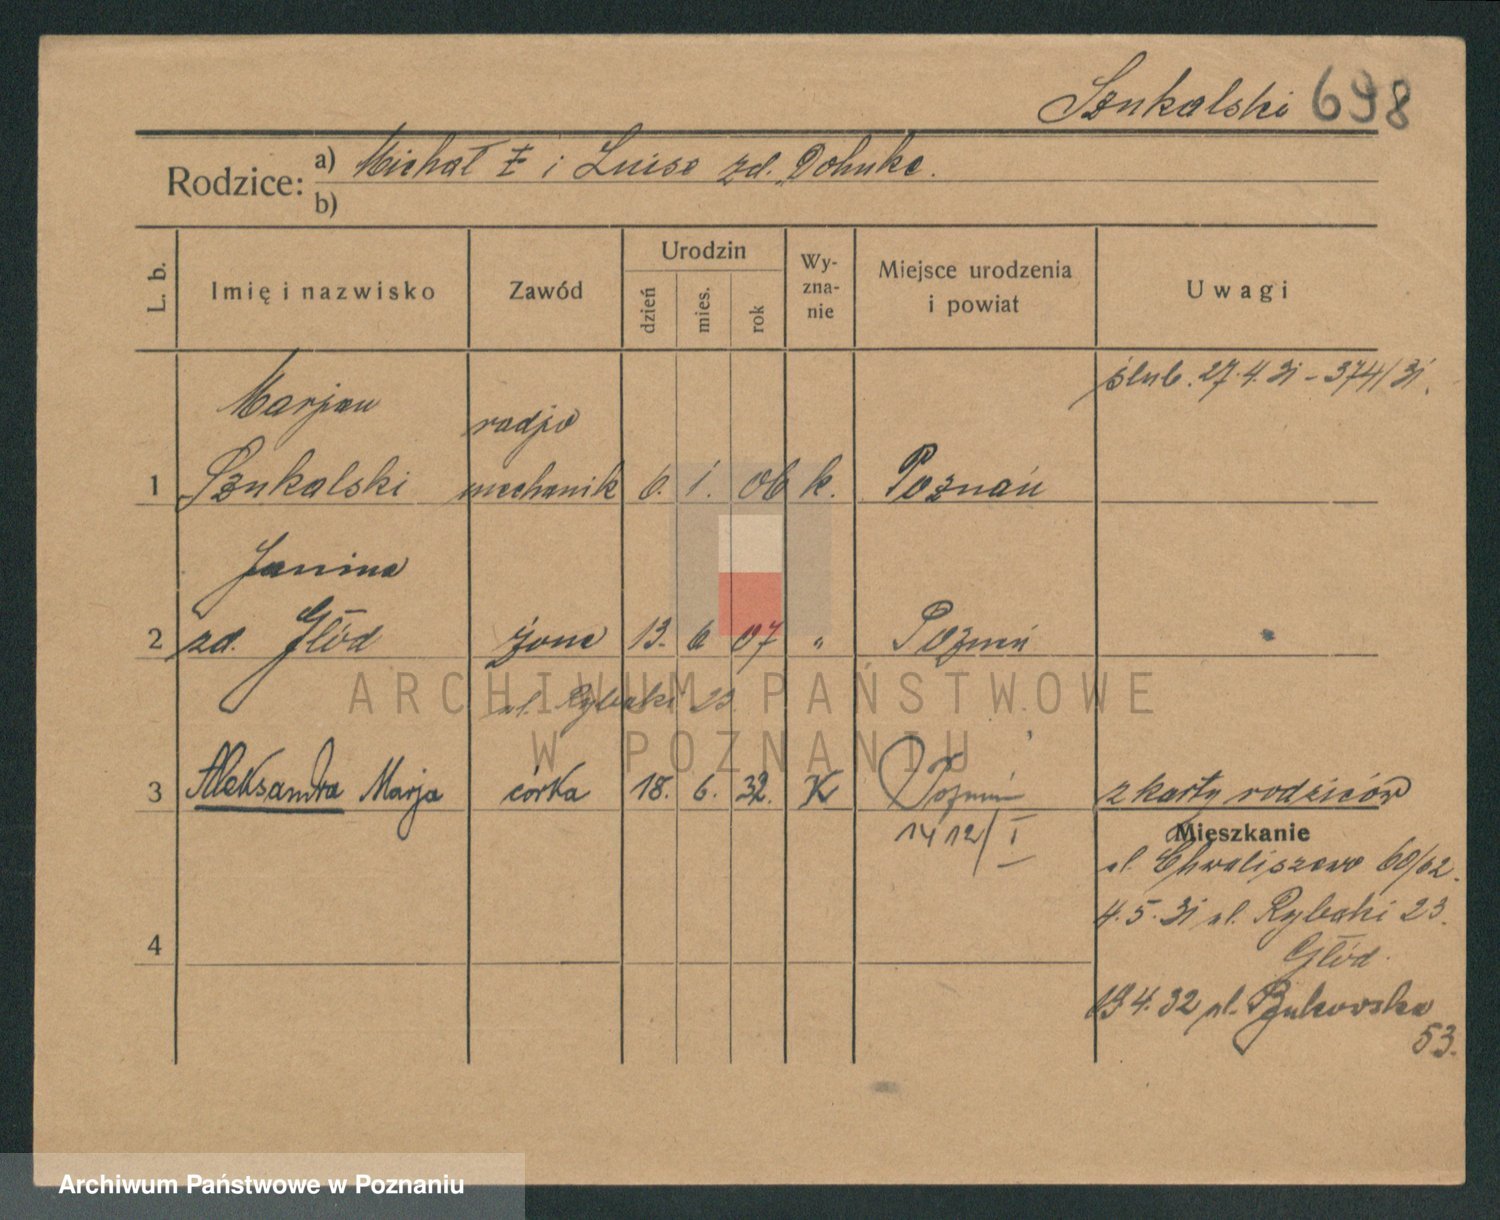 Szukalski 698
Rodzice: a) Michał Ł i Luise zd. Dohnke.
b)
L. b. Imię i nazwisko Zawód Urodzin dzień mies. rok Wy-zna-nie Miejsce urodzenia i powiat Uwagi
ślub. 27.4.31 - 374/31.
Marjan radjo
1 Szukalski mechanik 6. 1. 06 k. Poznań
Janina
2 zd. Głód żona 13. 6 07 " Poznań
ul. Rybaki 23.
ARCHIWUM PAŃSTWOWE
W POZNANIU
3 Aleksandra Marja córka 18. 6. 32. K Poznań z karty rodziców
1412/I
Mieszkanie
ul. Chwaliszewo 60/62.
4.5.31 ul. Rybaki 23.
4 Głód.
19.4.32 ul. Bukowska
53.
Archiwum Państwowe w Poznaniu